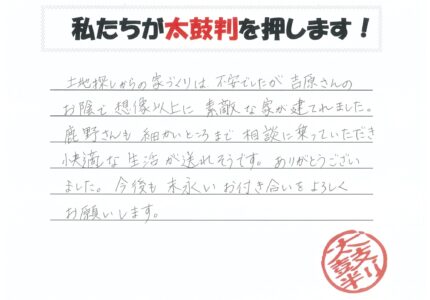 私たちが太鼓判を押します！
土地探しからの家づくりは不安でしたが吉原さんの
お陰で想像以上に素敵な家が建てれました。
鹿野さんも細かいところまで相談に乗っていただき
快適な生活が送れそうです。ありがとうござい
ました。今後も末永いお付き合いをよろしく
お願いします。
太鼓判